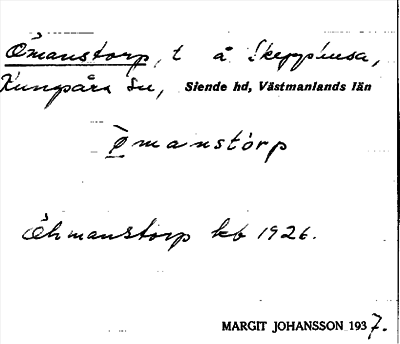 Ömanstorp, t å Skepplinsa,
Kungsåra sn, Siende hd, Västmanlands län
ø̀manstòrp
Öhmanstorp kb 1926.
MARGIT JOHANSSON 1937.